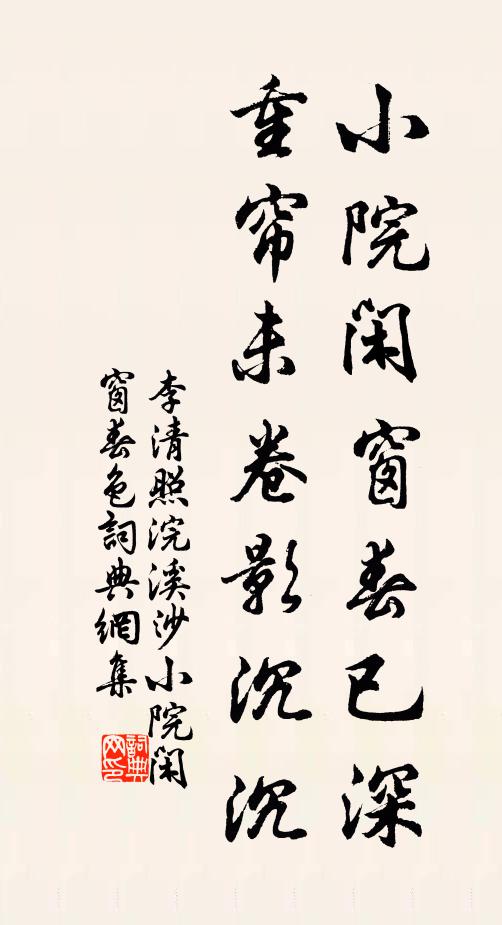 小院閑窗春已深
重帘未卷影沉沉
李清照浣溪沙小院閑
窗春色詞典網集
詞典网印